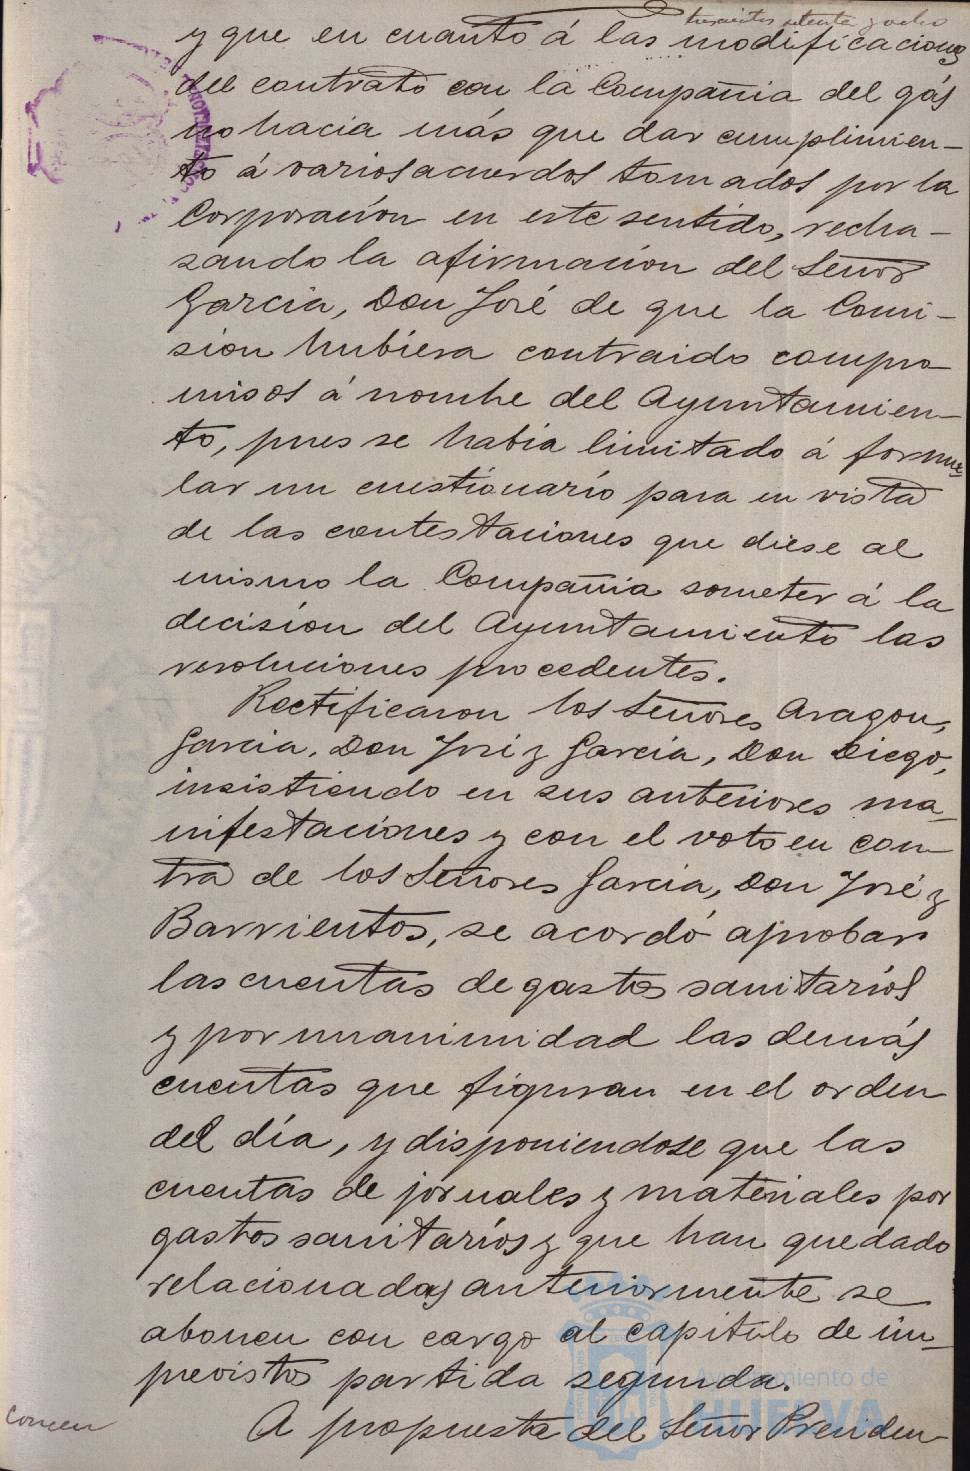 trescientos setenta y ocho
y que en cuanto á las modificaciones
del contrato con la Compañia del gás
no hacia más que dar cumplimien-
to á varios acuerdos tomados por la
Corporacion en este sentido, recha-
sando la afirmacion del Señor
Garcia, Don José de que la Comi-
sion hubiera contraido compro-
misos á nombre del Ayuntamien-
to, pues se habia limitado á formu-
lar un cuestionario para en vista
de las contestaciones que diese al
mismo la Compañia someter á la
decisión del Ayuntamiento las
resoluciones procedentes.
Rectificaron los Señores Aragon,
Garcia, Don José y Garcia, Don Diego,
insistiendo en sus anteriores ma-
nifestaciones y con el voto en con-
tra de los Señores Garcia, Don José y
Barrientos, se acordó aprobar
las cuentas de gastos sanitarios
y por unanimidad las demás
cuentas que figuran en el orden
del día, y disponiendose que las
cuentas de jornales y materiales por
gastos sanitarios y que han quedado
relacionadas anteriormente se
abonen con cargo al capitulo de im-
previstos partida segunda.
A propuesta del Señor Presiden-
Ayuntamiento de
HUELVA